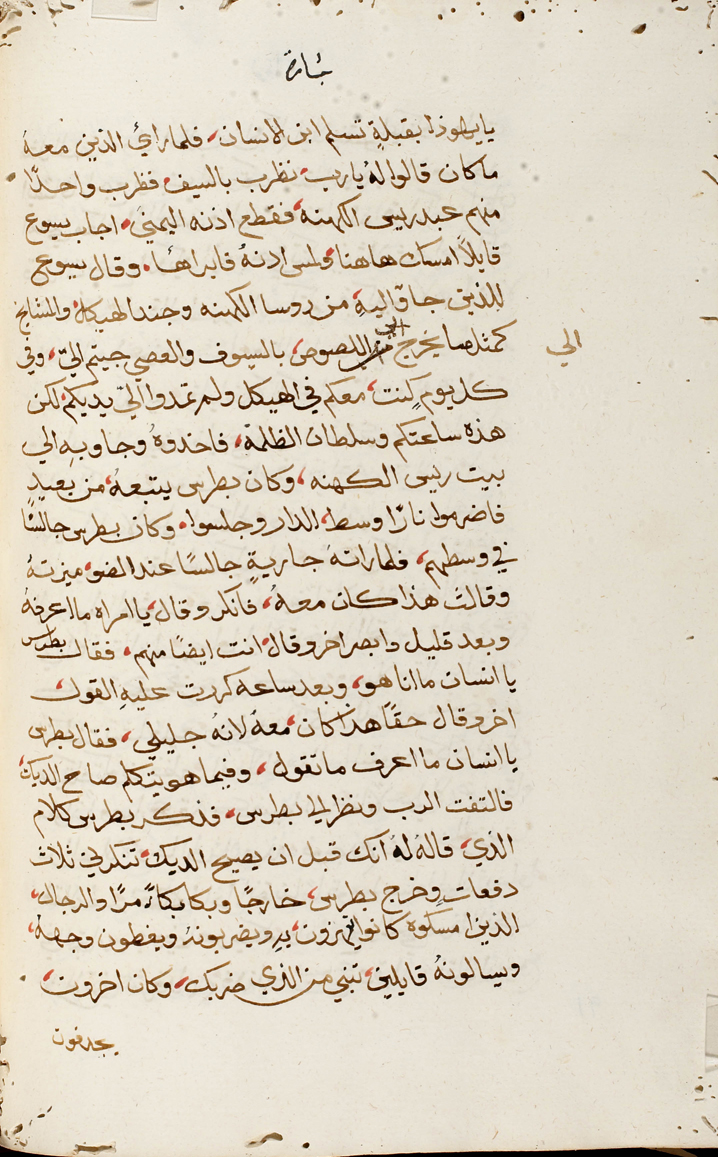 بشارة
يا يهوذا بقبلةٍ تسلم ابن الانسان، فلما رائ الذين معهُ
ما كان قالوا لهُ يا رب، نظرب بالسيف، فظرب واحدًا
منهم عبد ريس الكهنه، فقطع اذنه اليمنى، اجاب يسوع
قايلًا امسك هاهنا، ولمس ادنهُ فابراها، وقال يسوع
للذين جاو اليه، من روسا الكهنه وجند الهيكل، والمشايخ
كمثلما يخرج الى اللصوص، بالسيوف والعصي جيتم اليّ، وفي
الي
كل يومٍ كنت، معكم في الهيكل ولم تمدوا اليّ يديكم، لكن
هذه ساعتكم وسلطان الظلمة، فاخدوهُ وجاو بهِ الي
بيت ريس الكهنه، وكان بطرس يتبعهُ، من بعيدٍ
فاضرموا نارًا وسط، الدار وجلسوا، وكان بطرس جالسًا
في وسطهم، فلما راتهُ جاريةٍ جالسًا عند الضو، ميزتهُ
وقالت هذا كان معهُ، فانكر وقال، يا امراه ما اعرفهُ
وبعد قليل وابصر اخر وقال، انت ايضًا منهم، فقال بطرس
يا انسان ما انا هو، وبعد ساعه كررت عليهِ القول
اخر وقال حقًا هذا كان، معهُ لانهُ جليلي، فقال بطرس
يا انسان ما اعرف ما تقول، وفيما هو يتكلم صاح الديك
فالتفت الرب ونظر الى بطرس، فذكر بطرس كلام
الذي، قالهُ لهُ انك قبل ان يصيح الديك، تنكرني ثلاث
دفعاتٍ وخرج بطرس، خارجًا وبكا بكاءً مرًا والرجال،
الذين امسكوه كانوا يهزون، بهِ ويضربونهُ ويغطون وجههُ،
ويسالونهُ قايلين، تنبي من الذي ضربك، وكان اخرون،
يجدفون